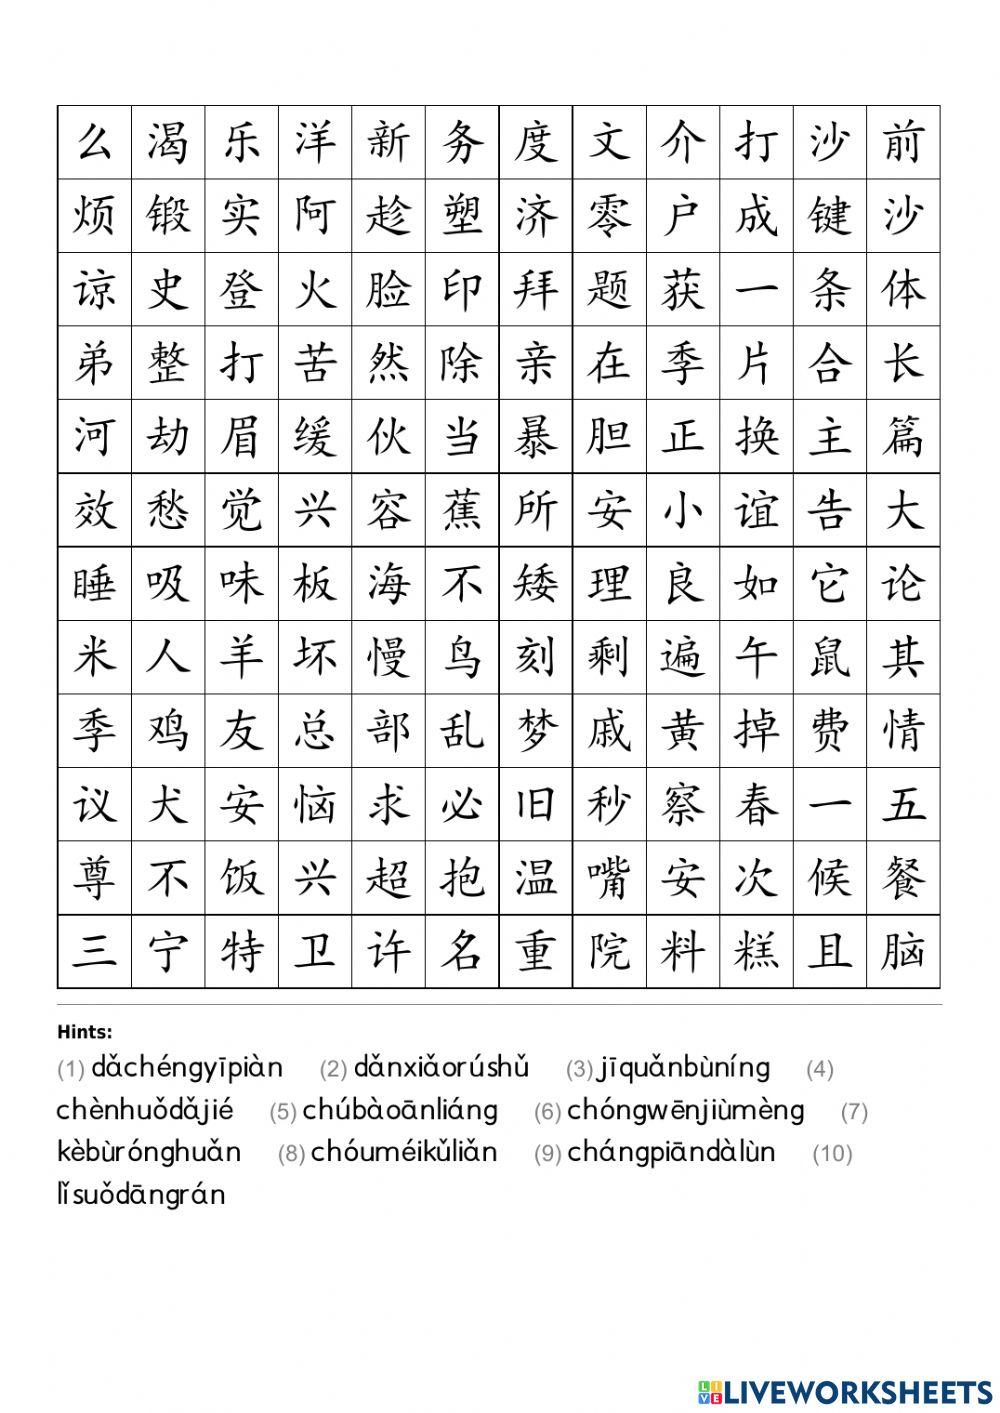 么 渴 乐 洋 新 务 度 文 介 打 沙 前
烦 锻 实 阿 趁 塑 济 零 户 成 键 沙
谅 史 登 火 脸 印 拜 题 获 一 条 体
弟 整 打 苦 然 除 亲 在 季 片 合 长
河 劫 眉 缓 伙 当 暴 胆 正 换 主 篇
效 愁 觉 兴 容 蕉 所 安 小 谊 告 大
睡 吸 味 板 海 不 矮 理 良 如 它 论
米 人 羊 坏 慢 鸟 刻 剩 遍 午 鼠 其
季 鸡 友 总 部 乱 梦 戚 黄 掉 费 情
议 犬 安 恼 求 必 旧 秒 察 春 一 五
尊 不 饭 兴 超 抱 温 嘴 安 次 候 餐
三 宁 特 卫 许 名 重 院 料 糕 且 脑
Hints:
(1) dǎchéngyīpiàn (2) dǎnxiǎorúshǔ (3) jīquǎnbùníng (4)
chènhuǒdǎjié (5) chúbàoānliáng (6) chóngwēnjiùmèng (7)
kèbùrónghuǎn (8) chóuméikǔliǎn (9) chángpiāndàlùn (10)
lǐsuǒdāngrán
LIVE LIVEWORKSHEETS